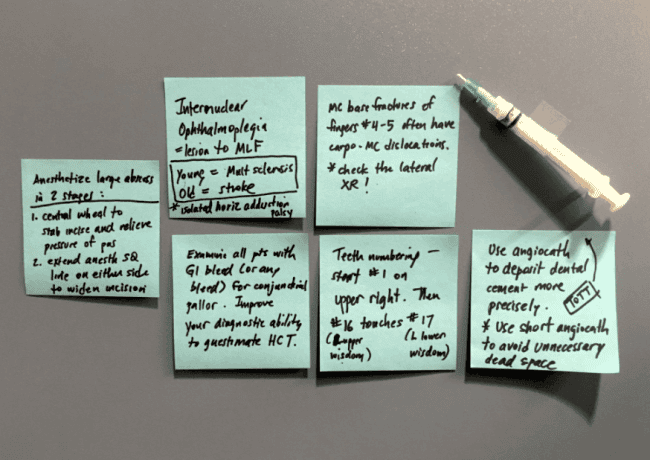 Anesthetize large abscess
in 2 stages:
1. central wheal to
stab incise and relieve
pressure of pus
2. extend anesth SQ
line on either side
to widen incision
Internuclear
Ophthalmoplegia
= lesion to MLF
Young = Mult sclerosis
Old = stroke
* isolated horiz adduction
palsy
MC base fractures of
fingers #4-5 often have
carpo-MC dislocations.
* check the lateral
XR!
Examine all pts with
GI bleed (or any
bleed) for conjunctival
pallor. Improve
your diagnostic ability
to guestimate HCT.
Teeth numbering –
start #1 on
upper right. Then
#16 touches #17
(L upper (L lower
wisdom) wisdom)
Use angiocath
to deposit dental
cement more
precisely.
TOTT
* Use short angiocath
to avoid unnecessary
dead space